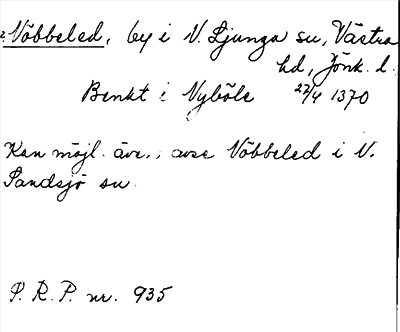 Vöbbeled, by i V. Ljunga su, Västra
hd, Jönk. l.
Benkt i Nyböle 27/4 1370
Kan möjl. äv. avse Vöbbeled i V.
Sandsjö su.
P. R. P. nr. 935